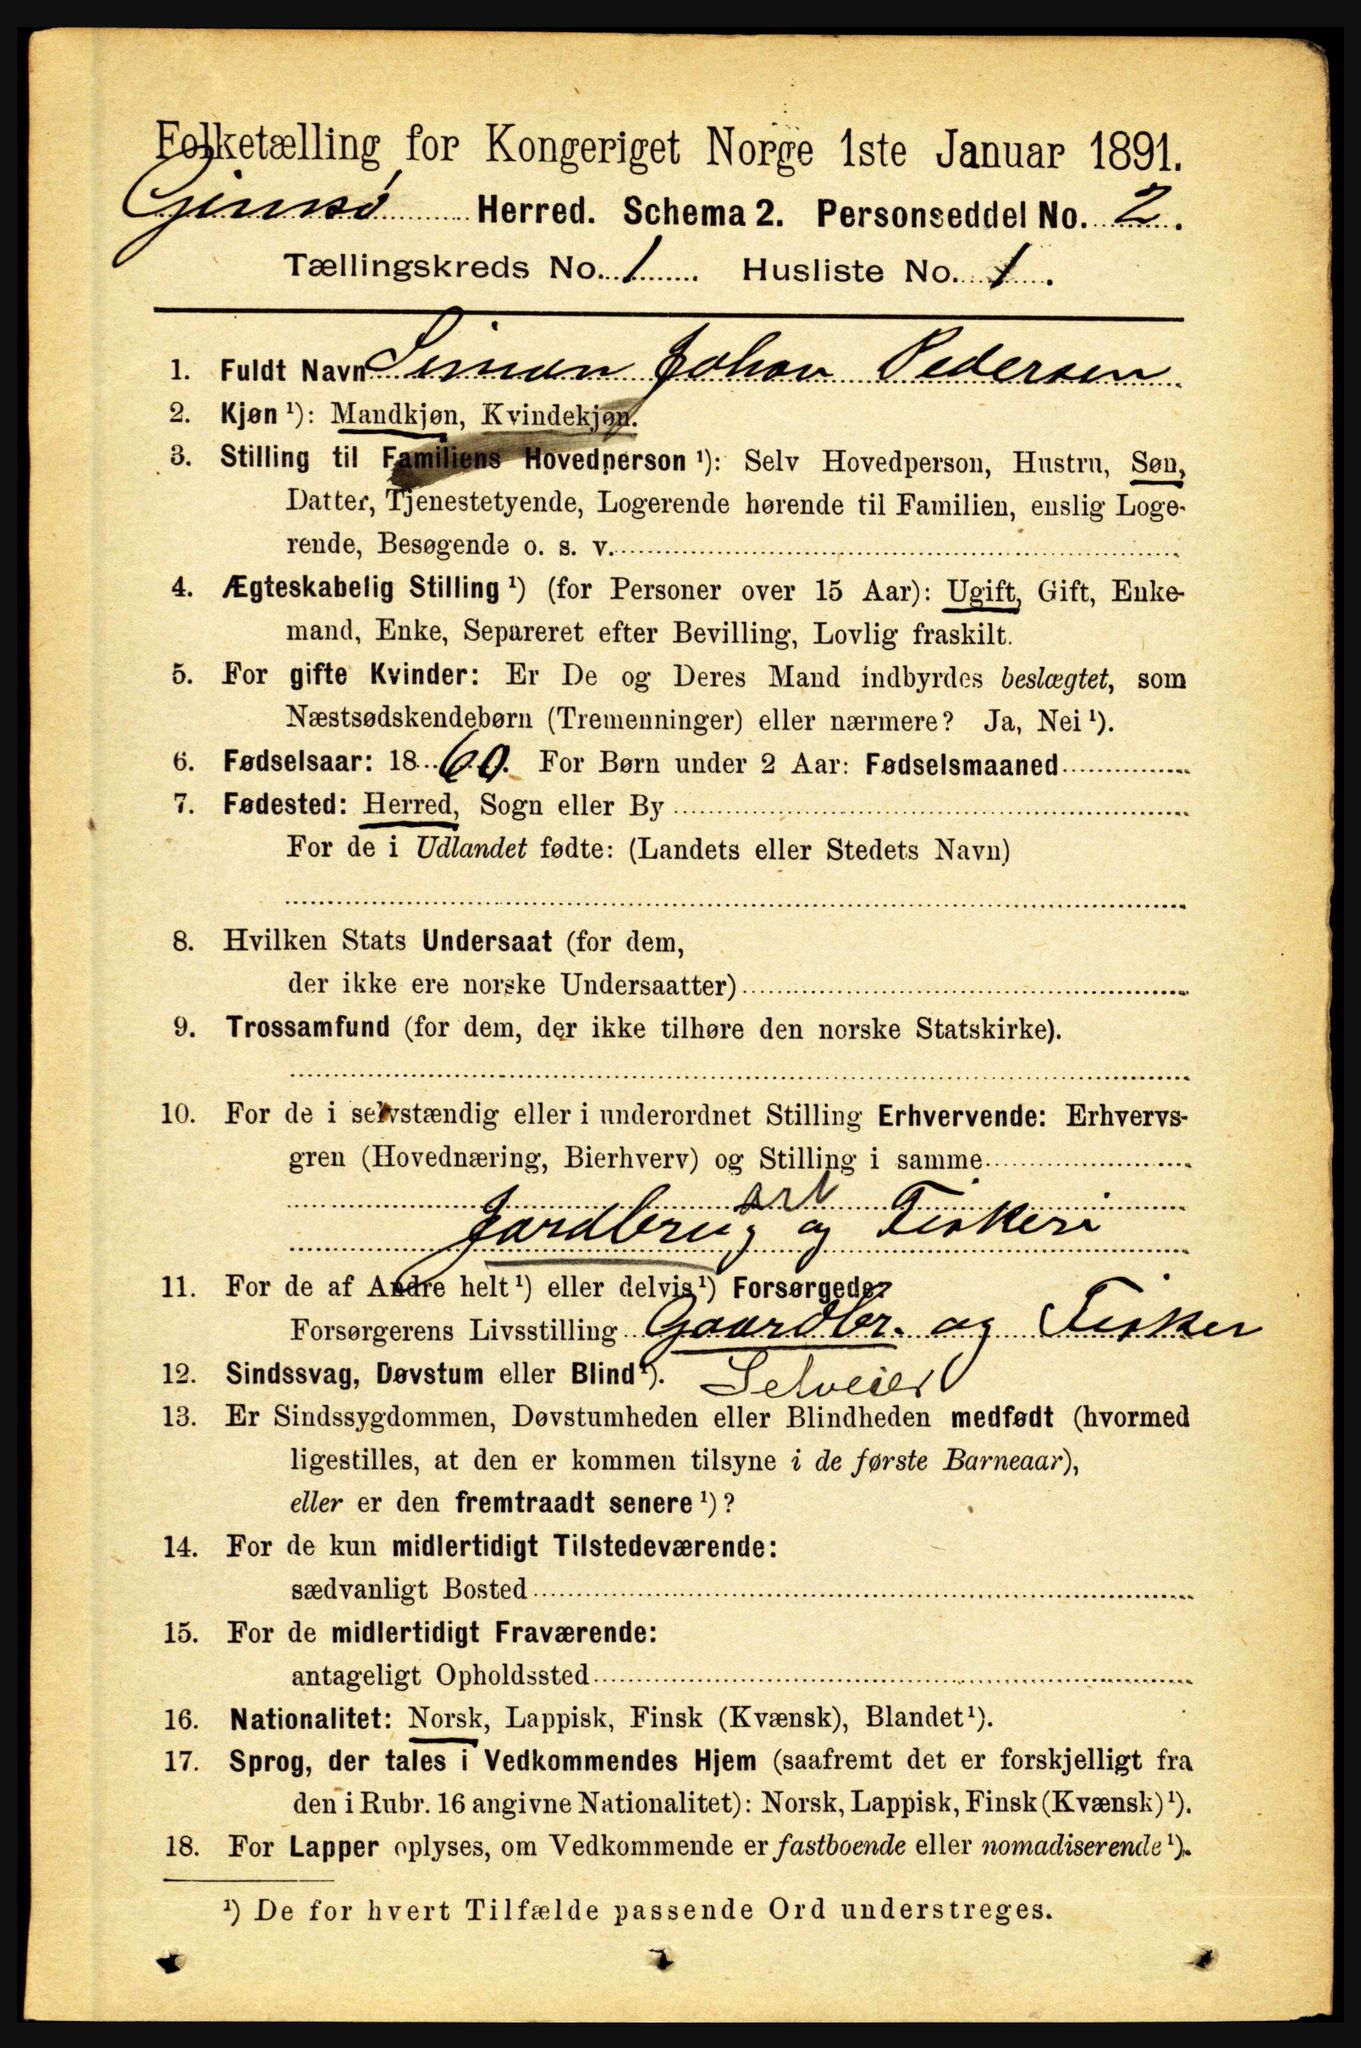 Folketælling for Kongeriget Norge 1ste Januar 1891.
Gimsø Herred. Schema 2. Personseddel No. 2.
Tællingskreds No. 1 Husliste No. 1.
1. Fuldt Navn Simon Johan Pedersen
2. Kjøn ¹): Mandkjøn, Kvindekjøn.
3. Stilling til Familiens Hovedperson ¹): Selv Hovedperson, Hustru, Søn,
Datter, Tjenestetyende, Logerende hørende til Familien, enslig Loge-
rende, Besøgende o. s. v.
4. Ægteskabelig Stilling ¹) (for Personer over 15 Aar): Ugift, Gift, Enke-
mand, Enke, Separeret efter Bevilling, Lovlig fraskilt.
5. For gifte Kvinder: Er De og Deres Mand indbyrdes beslægtet, som
Næstsødskendebørn (Tremenninger) eller nærmere? Ja, Nei ¹).
6. Fødselsaar: 1860. For Børn under 2 Aar: Fødselsmaaned
7. Fødested: Herred, Sogn eller By
For de i Udlandet fødte: (Landets eller Stedets Navn)
8. Hvilken Stats Undersaat (for dem,
der ikke ere norske Undersaatter)
9. Trossamfund (for dem, der ikke tilhøre den norske Statskirke).
10. For de i selvstændig eller i underordnet Stilling Erhvervende: Erhvervs-
gren (Hovednæring, Bierhverv) og Stilling i samme
Jordbrug og Fiskeri
11. For de af Andre helt ¹) eller delvis ¹) Forsørgede:
Forsørgerens Livsstilling Gaardbr. og Fisker
12. Sindssvag, Døvstum eller Blind ¹). Selveier
13. Er Sindssygdommen, Døvstumheden eller Blindheden medfødt (hvormed
ligestilles, at den er kommen tilsyne i de første Barneaar),
eller er den fremtraadt senere ¹)?
14. For de kun midlertidigt Tilstedeværende:
sædvanligt Bosted
15. For de midlertidigt Fraværende:
antageligt Opholdssted
16. Nationalitet: Norsk, Lappisk, Finsk (Kvænsk), Blandet ¹).
17. Sprog, der tales i Vedkommendes Hjem (saafremt det er forskjelligt fra
den i Rubr. 16 angivne Nationalitet): Norsk, Lappisk, Finsk (Kvænsk) ¹).
18. For Lapper oplyses, om Vedkommende er fastboende eller nomadiserende ¹).
¹) De for hvert Tilfælde passende Ord understreges.